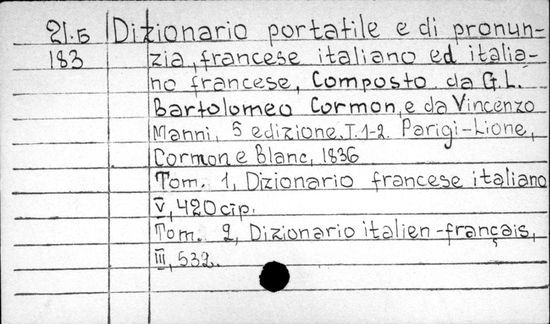 21.5 Dizionario portatile e di pronun-
183 zia, francese italiano ed italia-
no francese, Composto da G.L.
Bartolomeo Cormon, e da Vincenzo
Manni, 5 edizione. T. 1-2. Parigi-Lione,
Cormon e Blanc, 1836
Tom. 1, Dizionario francese italiano
V, 420 cip.
Tom. 2, Dizionario italien-français,
III, 532.